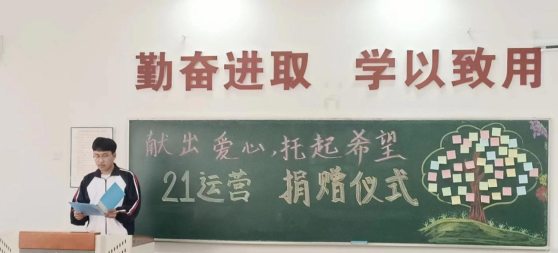 勤奋进取 学以致用
献出爱心,托起希望
21运营 捐赠仪式